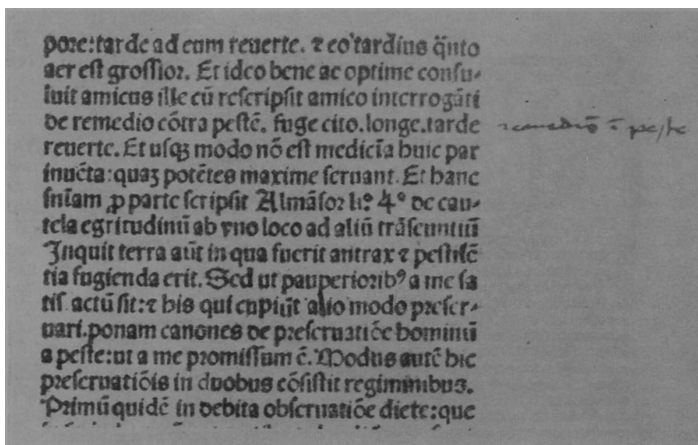 pore: tarde ad eum reuerte. ⁊ eo tardius q̃nto
aer est grossior. Et ideo bene ac optime consu-
luit amicus ille cũ rescripsit amico interrogãti
de remedio cõtra pestẽ. fuge cito. longe. tarde
remediũ ĩ peste
reuerte. Et usqꝫ modo nõ est medicĩa huic par
inuẽta: quaꝫ potẽtes maxime seruant. Et hanc
sniam ꝓ parte scripsit Almãsor li.º 4.º de cau-
tela egritudinũ ab vno loco ad aliũ trãseuntiũ
Inquit terra aũt in qua fuerit antrax ⁊ pestilẽ
tia fugienda erit. Sed ut pauperioribꝰ a me sa
tis actũ sit: ⁊ his qui cupiũt alio modo preser-
uari. ponam canones de preseruatiõe hominũ
a peste: ut a me promissum ẽ. Modus autẽ hic
preseruatiõis in duobus cõsistit regiminibus.
Primũ quidẽ in debita obseruatiõe diete: que